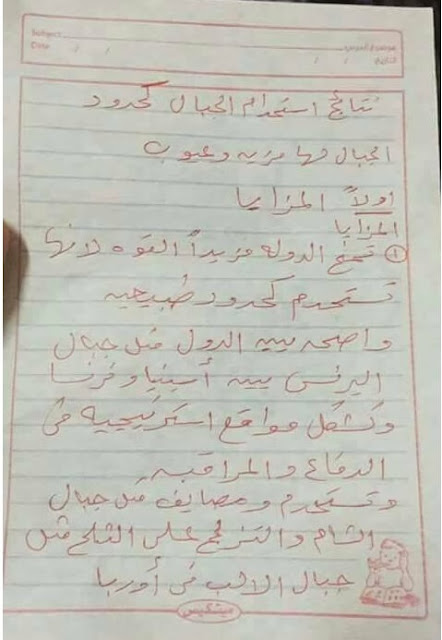 Subject
موضوع الدرس
Date / /
التاريخ / /
نتائج استخدام الجبال كحدود
الجبال لها مزيه وعيوب
اولاً المزايا
المزايا
① تمنح الدوله مزيداً القوه لانها
تستخدم كحدود طبيعيه
واضحه بين الدول مثل جبال
البرنس بين أسبنيا وفرنسا
وتشكل مواقع استرتيجيه فى
الدفاع والمراقبه
وتستخدم ومصايف مثل جبال
الشام والتزلج على الثلج مثل
جبال الالب فى أوربا
مينتكيس